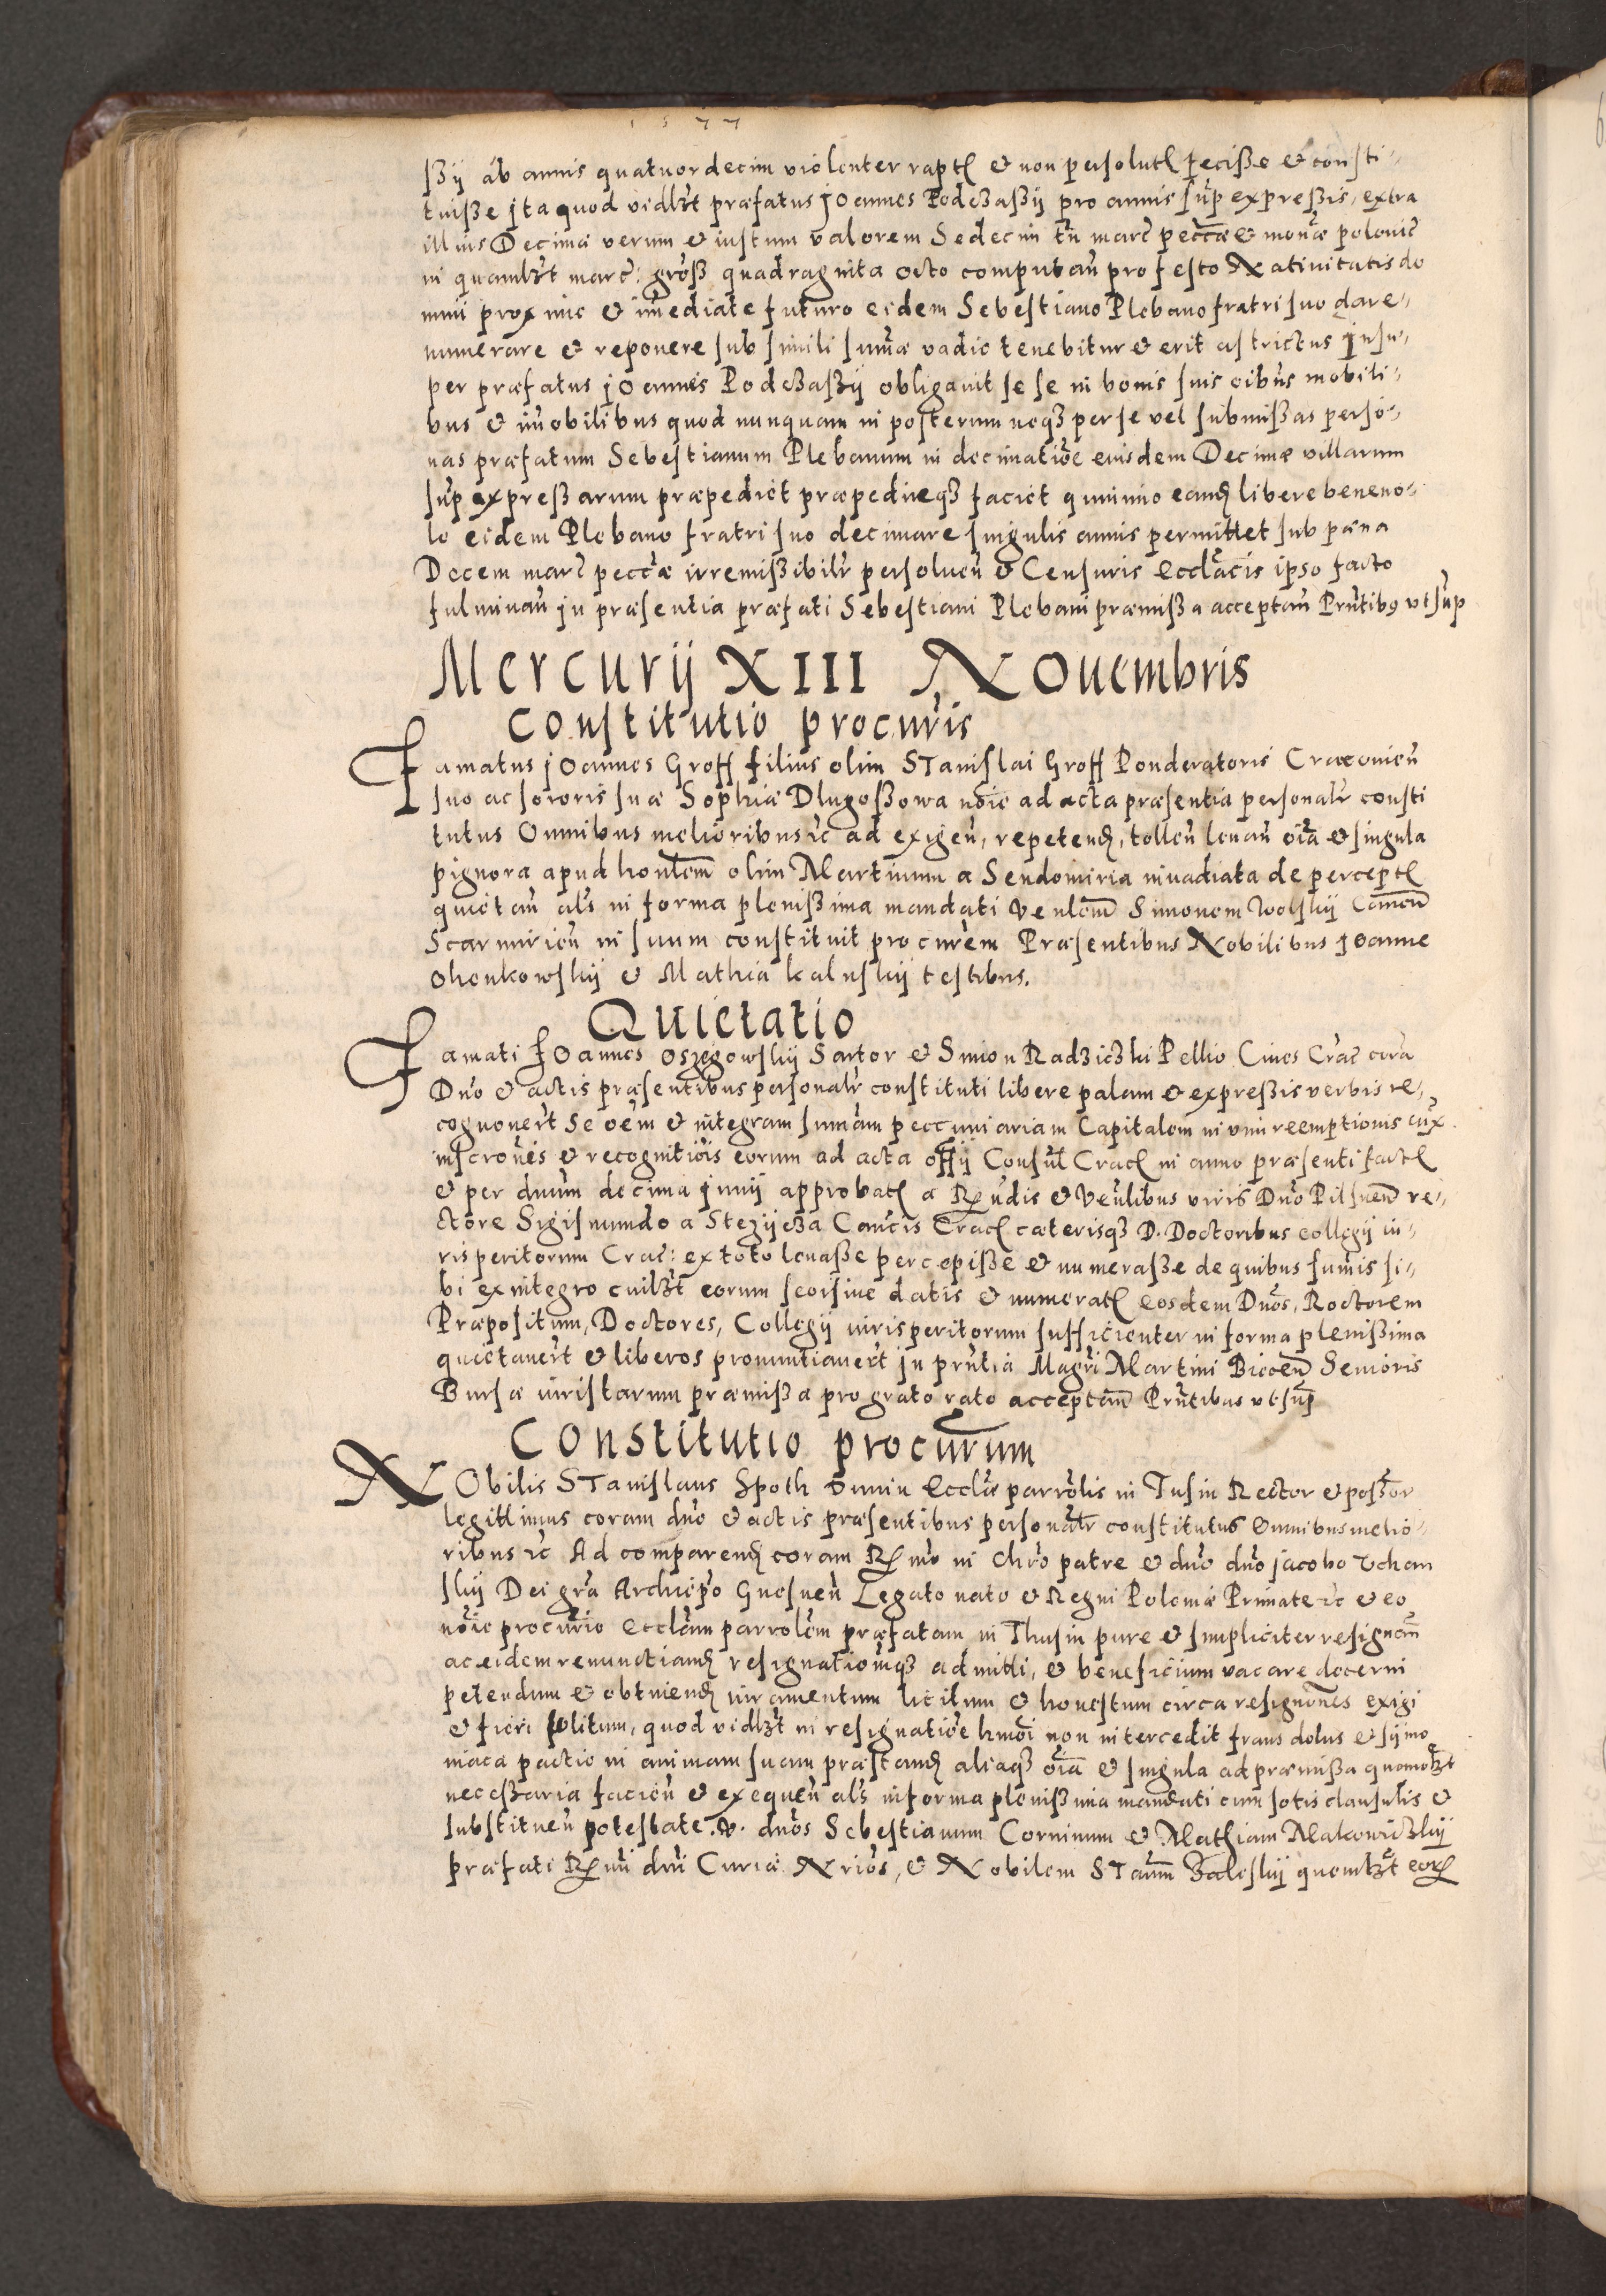 1577
ſßÿ ab annis quatuordecim violenter rapt[ & non persolut[ feciße & consti-
tuiße Jta quod vidlʒt præfatus Joannes Podeʒaßÿ pro annis sup̃ expreßis, extra
illius Decimæ verum & iustum valorem Sedecim tñ marc̃ pecc̃æ & mon̄æ polonic̃
in quamlʒt marc̃: groß quadraginta octo computan̄ pro festo Natiuitatis do
mini proxime & im̄ediate futuro eidem Sebestiano Plebano fratri suo dare-
numerare & reponere sub simili sum̄æ vadio tenebitur & erit astrictus Insu-
per præfatus Joannes Podeʒaßÿ obligauit se se in bonis suis oībus mobili-
bus & im̄obilibus quod nunquam in posterum neqʒ per se vel submißas perso-
nas præfatum Sebestianum Plebanum in decimatiōe eiusdem Decimæ villarum
sup̃ expreßarum præpediet præpedireqʒ faciet quinimo eand[ libere beneuo-
le eidem Plebano fratri suo decimare singulis annis permittet sub pæna
Decem marc̃ pecc̃æ irremißibilr̃ persoluen̄ & Censuris Eccl̃acis ipso facto
fulminan̄ in præsentia præfati Sebestiani Plebani præmißa acceptan̄ Prñtibꝰ vt sup̃
Mercurÿ XIII Nouembris
Constitutio procur̃is
Famatus Joannes Groff filius olim STanislai Groff Ponderatoris Cracouien̄
suo ac sororis suæ Sophiæ Dlugoßowa nōie ad acta præsentia personalr̃ consti
tutus Omnibus melioribus ꝛc ad exigen̄, repetend[, tollen̄ leuan̄ oīa & singula
pignora apud hon̄lem olim Martinum a Sendomiria inuadiata de percept[
quietan̄ als̄ in forma plenißima mandati Ven̄lem Simonem Wolskÿ Cam̄en̄
Scarmirien̄ in suum constituit procur̃em Præsentibus Nobilibus Joanne
Ohenkowskÿ & Mathia kaluskÿ testibus.
Quietatio
Famati Joannes Osʒegowskÿ Sartor & Simon Radʒicʒki Pellio Ciues Crac̃ cora
Dn̄o & actis præsentibus personalr̃ constituti libere palam & expreßis verbis re-
cognouer̃t Se oēm & integram sum̄am peccuniariam Capitalem in vim reemptionis iux
inscrōnes & recognitiōis eorum ad acta offÿ Consul̃ Crac[ in anno præsenti fact[
& per duum decima Junÿ approbat[ a Rṇdis & Veñlibus viris Dn̄o Pilsnen̄ re-
ctore Sigismundo a Steʒÿcʒa Can̄cis Crac[ cæterisqʒ D. Doctoribus collegÿ iu-
risperitorum Crac̃: ex toto leuaße percepiße & numeraße de quibus sum̄is si-
bi ex integro cuilʒt eorum seorsiue datis & numerat[ eosdem Dn̄os, Rectorem
Præpositum, Doctores, Collegÿ iurisperitorum sufficienter in forma plenißima
quietauer̃t & liberos pronuntiauer̃t in prñtia Magr̃i Martini Biecen̄ Senioris
Bursæ iuristarum præmißa pro grato rato acceptan̄ Prñtibus vt sup̃
Constitutio procur̃um
NObilis STanislaus Spoth Dunin Eccl̃æ parrōlis in Tusin Rector & poßor
legittimus coram dn̄o & actis præsentibus personalr̃ constitutus Omnibus melio-
ribus ꝛc Ad comparend[ coram Rm̄o in Chr̃o patre & dn̄o dn̄o Jacobo Vchan
skÿ Dei gr̃a Archiep̃o Gnesnen̄ Legato nato & Regni Poloniæ Primate ꝛc & eo
nōie procur̃io Eccl̃am parrōlem præfatam in Thusin pure & simpliciter resignan̄
ac eidem renunctiand[ resignationemqʒ admitti, & beneficium vacare decerni
petendum & obtinend[ iuramentum licitum & honestum circa resignōnes exigi
& fieri solitum, quod vidlʒt in resignatiōe hm̄oi non intercedit fraus dolus & sÿmo
niaca pactio in animam suam præstand[ aliaqʒ oīa & singula ad præmißa quomolʒt
neceßaria facien̄ & exequen̄ als̄ in forma plenißima mandati cum sotis clausulis &
substituen̄ potestate. V. dn̄os Sebestianum Corninum & Mathiam Makowicʒkÿ
præfati Rm̄i dn̄i Curiæ Nrios, & Nobilem STan̄m Zaleskÿ quemlʒt eor[